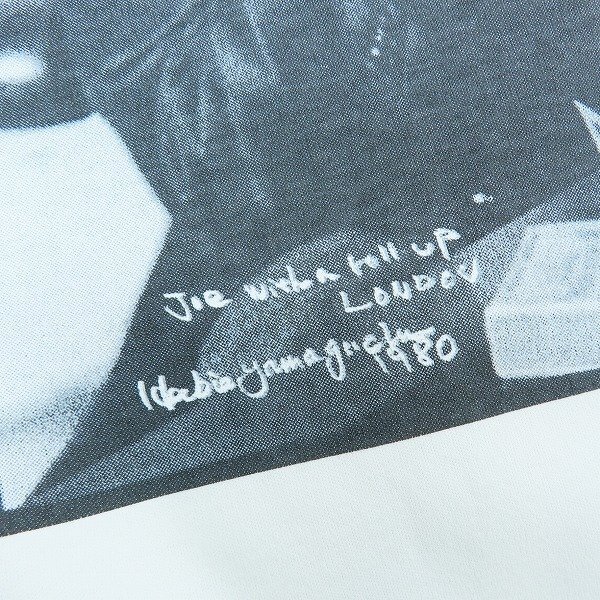 Joe with a roll up
LONDON
Herbie yamaguchi
1980